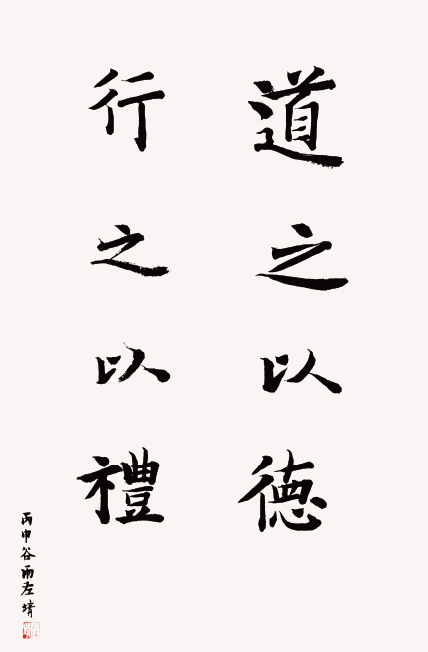 道之以德
行之以禮
丙申谷雨左靖